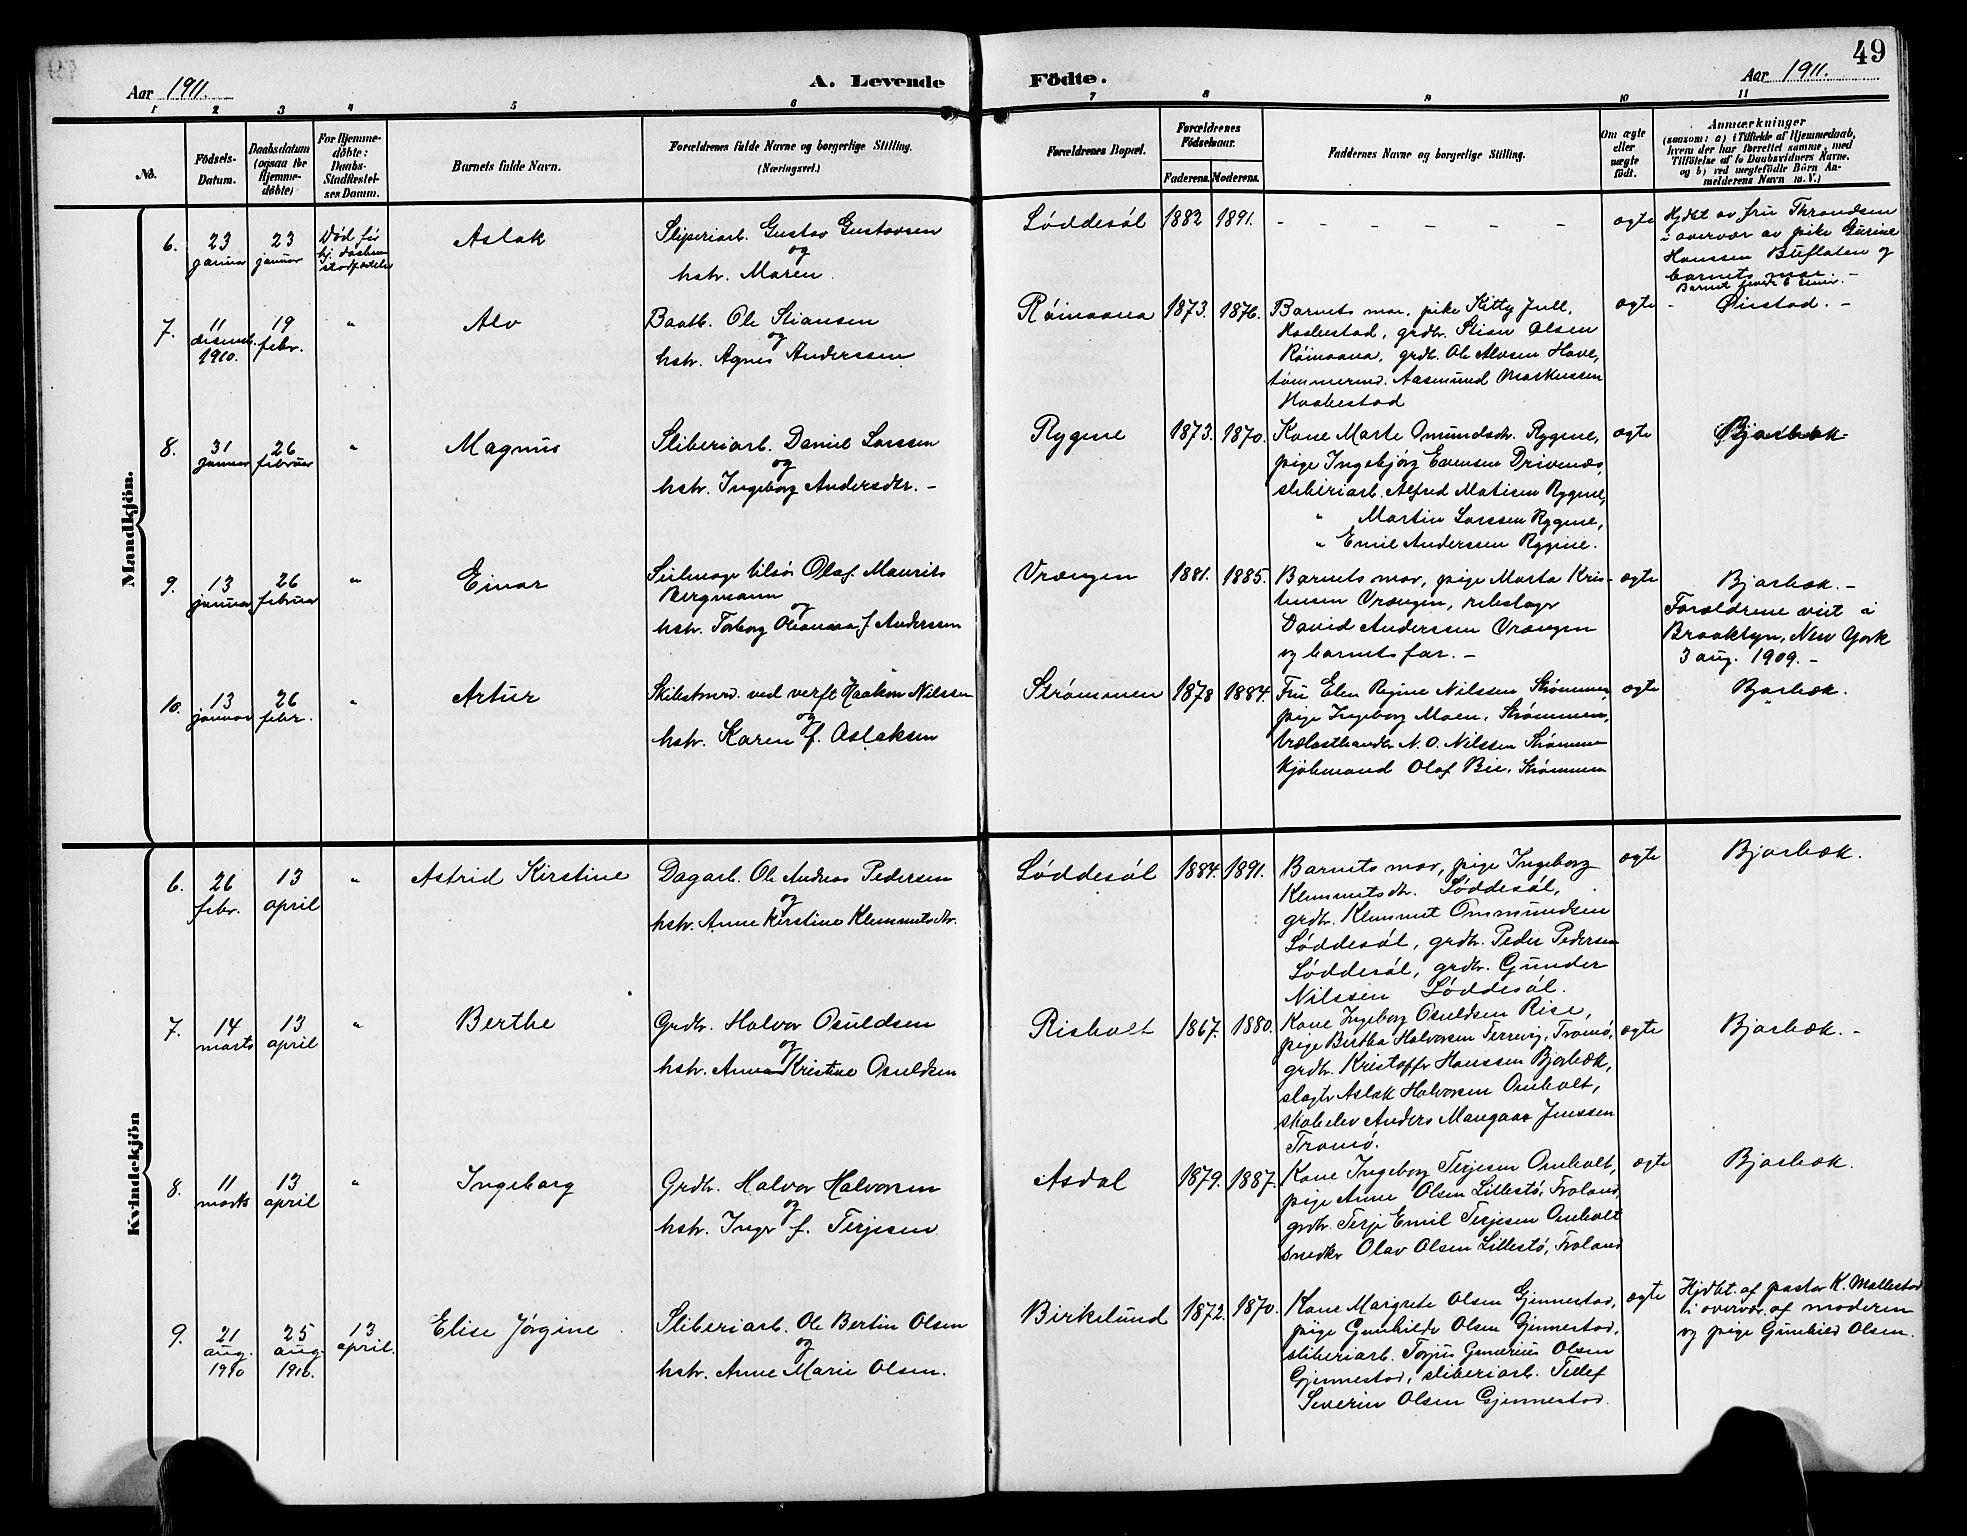 49
Aar 1911.
A. Levende
Födte.
Aar 1911.
1 2 3 4 5 6 7 8 9 10 11
No.
Födsels-
Datum.
Daabsdatum
(ogsaa for
Hjemme-
döbte)
For Hjemme-
döbte:
Daabs-
Stadfæstel-
ses Datum.
Barnets fulde Navn.
Forældrenes fulde Navne og borgerlige Stilling.
(Næringsvei.)
Forældrenes Bopæl.
Forældrenes
Födselsaar.
Faderens. Moderens.
Faddernes Navne og borgerlige Stilling.
Om ægte
eller
uægte
født.
Anmærkninger
(saasom: a) i Tilfælde af Hjemmedaab,
hvem der har forrettet samme, med
Tilföielse af to Daabsvidners Navne.
og b) ved uægtefödte Börn An-
melderens Navn m. V.)
Mandkjön.
6.
23
januar
23
januar
Død før
Aslak
Sliperiarb. Gustav Gustavsen
og
hstr. Maren.
Løddesøl
1882
1891.
- - - - - -
ægte
Hjdbt av fru Throndsen
i overvær av pike Gurine
Hanssen Buflaten og
barnets mor. -
7.
11
desemb.
1910.
19
febr.
"
Alv
Baatb. Ole Stiansen
og
hstr. Agnes Anderssen
Røinaana
1873.
1876.
Barnets mor, pike Kitty Jull,
Haabestad, grdbr. Stian Olsen
Røinaana, grdbr. Ole Alvsen Have,
tømmermd. Aasmund Markussen
Haabestad
ægte
- Øiestad. -
8.
31
januar
26
februar
"
Magnus
Sliberiarb. Daniel Larssen
og
hstr. Ingeborg Andersdtr. -
Rygene
1873.
1870.
Kone Marte Omundsdtr. Rygene,
pige Ingebjørg Evensen Drivenæs,
sliberiarb. Alfred Matisen Rygene,
" Martin Larssen Rygene,
" Emil Anderssen Rygene.
ægte
Bjorbæk
9.
13
januar
26
februar
"
Einar
Seilmage tilsø. Olaf Maurits
Bergmann
og
hstr. Torborg Oleanna f Anderssen
Vrængen
1881.
1885.
Barnets mor, pige Marta Kris-
tensen Vrængen, rebslager
David Anderssen Vrængen
og barnets far. -
ægte
Bjorbæk. -
Forældrene viet i
Brooklyn, New York
3 aug. 1909. -
10.
13
januar
26
febr.
"
Artur
Skibstmrd. ved verft Haakon Nilssen
og
hstr. Karen f. Aslaksen
Strømmen
1878
1884.
Fru Elen Regine Nilssen Strømmen
pige Ingeborg Moen, Strømmen,
trælasthandler N. O. Nilssen Strømmen
Kjøbmand Olaf Bie, Strømmen
ægte
Bjorbæk.
Kvindekjön
6.
26
febr.
13
april
"
Astrid Kirstine
Dagarb. Ole Andreas Pedersen
og
hstr. Anne Kirstine Klemmetsdtr.
Løddesøl
1884.
1891.
Barnets mor, pige Ingeborg
Klemmetsdtr. Løddesøl,
grdbr. Klemmet Ommundsen
Løddesøl, grdbr. Peder Pedersen
Løddesøl, grdbr. Gunder
Nilssen Løddesøl.
ægte
Bjorbæk.
7.
14
marts
13
april
"
Berthe
Grdbr. Halvor Osuldsen
og
hstr. Anna Kristine Osuldsen
Risholt
1867.
1880.
Kone Ingeborg Osuldsen Rise,
pige Bertha Halvorsen Terrevig, Tromø,
grdbr. Kristoffer Hanssen Bjorbæk,
slagter Aslak Halvorsen Omholt,
skoleelev Anders Jenssen
Tromø.
ægte
Bjorbæk. -
8.
11
marts
13
april
"
Ingeborg
Grdbr. Halvor Halvorsen
og
hstr. Inger f. Terjesen
Asdal
1879.
1887.
Kone Ingeborg Terjesen Omholt,
pige Anne Olsen Lillestø, Froland,
grdbr. Terje Emil Terjesen Omholt
snedker Olav Olsen Lillestø, Froland
ægte
Bjorbæk.
9.
21
aug.
1910
25
aug.
1910.
13
april.
Elise Jørgine
Sliberiarb. Ole Bertin Olsen
og
hstr. Anne Marie Olsen.
Birkelund
1872.
1870.
Kone Margrete Olsen Gjennestad,
pige Gunhilde Olsen Gjennestad,
sliberiarb. Torjus Gunerius Olsen
Gjennestad, sliberiarb. Tellef
Severin Olsen Gjennestad.
ægte
Hjdbt. af pastor K. Mallestad
i overvær. af moderen
og pige Gunhild Olsen.